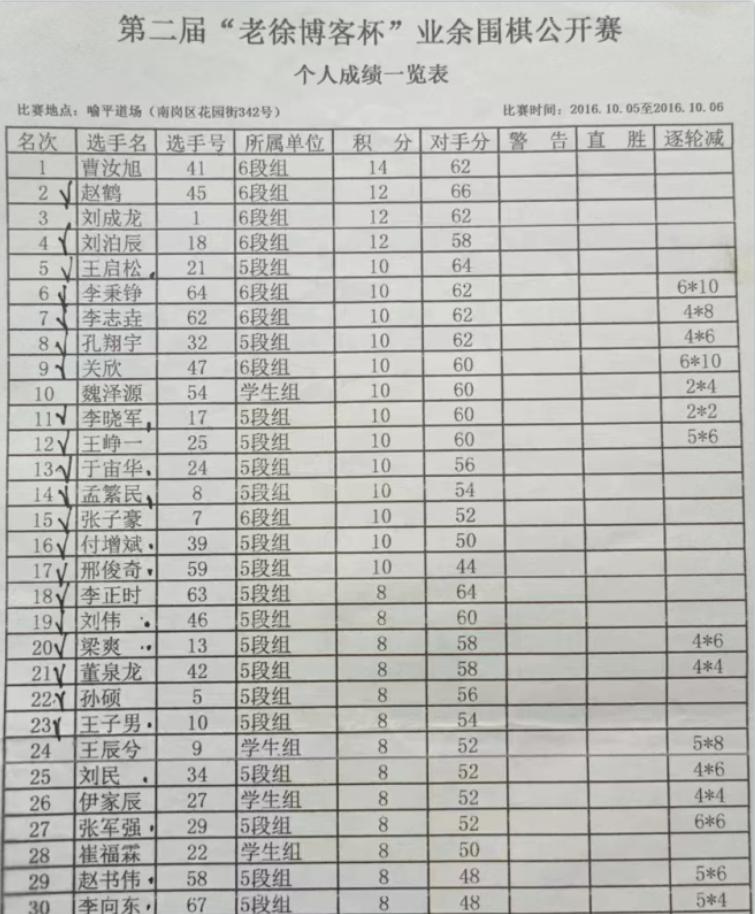 第二届“老徐博客杯”业余围棋公开赛
个人成绩一览表
比赛地点：喻平道场（南岗区花园街342号） 比赛时间：2016.10.05至2016.10.06
名次 选手名 选手号 所属单位 积 分 对手分 警 告 直 胜 逐轮减
1 曹汝旭 41 6段组 14 62
2 赵鹤 45 6段组 12 66
3 刘成龙 1 6段组 12 62
4 刘泊辰 18 6段组 12 58
5 王启松 21 5段组 10 64
6 李秉铮 64 6段组 10 62 6*10
7 李志垚 62 6段组 10 62 4*8
8 孔翔宇 32 5段组 10 62 4*6
9 关欣 47 6段组 10 60 6*10
10 魏泽源 54 学生组 10 60 2*4
11 李晓军 17 5段组 10 60 2*2
12 王峥一 25 5段组 10 60 5*6
13 于宙华 24 5段组 10 56
14 孟繁民 8 5段组 10 54
15 张子豪 7 6段组 10 52
16 付增斌 39 5段组 10 50
17 邢俊奇 59 5段组 10 44
18 李正时 63 5段组 8 64
19 刘伟 46 5段组 8 60
20 梁爽 13 5段组 8 58 4*6
21 董泉龙 42 5段组 8 58 4*4
22 孙硕 5 5段组 8 56
23 王子男 10 5段组 8 54
24 王辰兮 9 学生组 8 52 5*8
25 刘民 34 5段组 8 52 4*6
26 伊家辰 27 学生组 8 52 4*4
27 张军强 29 5段组 8 52 6*6
28 崔福霖 22 学生组 8 50
29 赵书伟 58 5段组 8 48 5*6
30 李向东 67 5段组 8 48 5*4